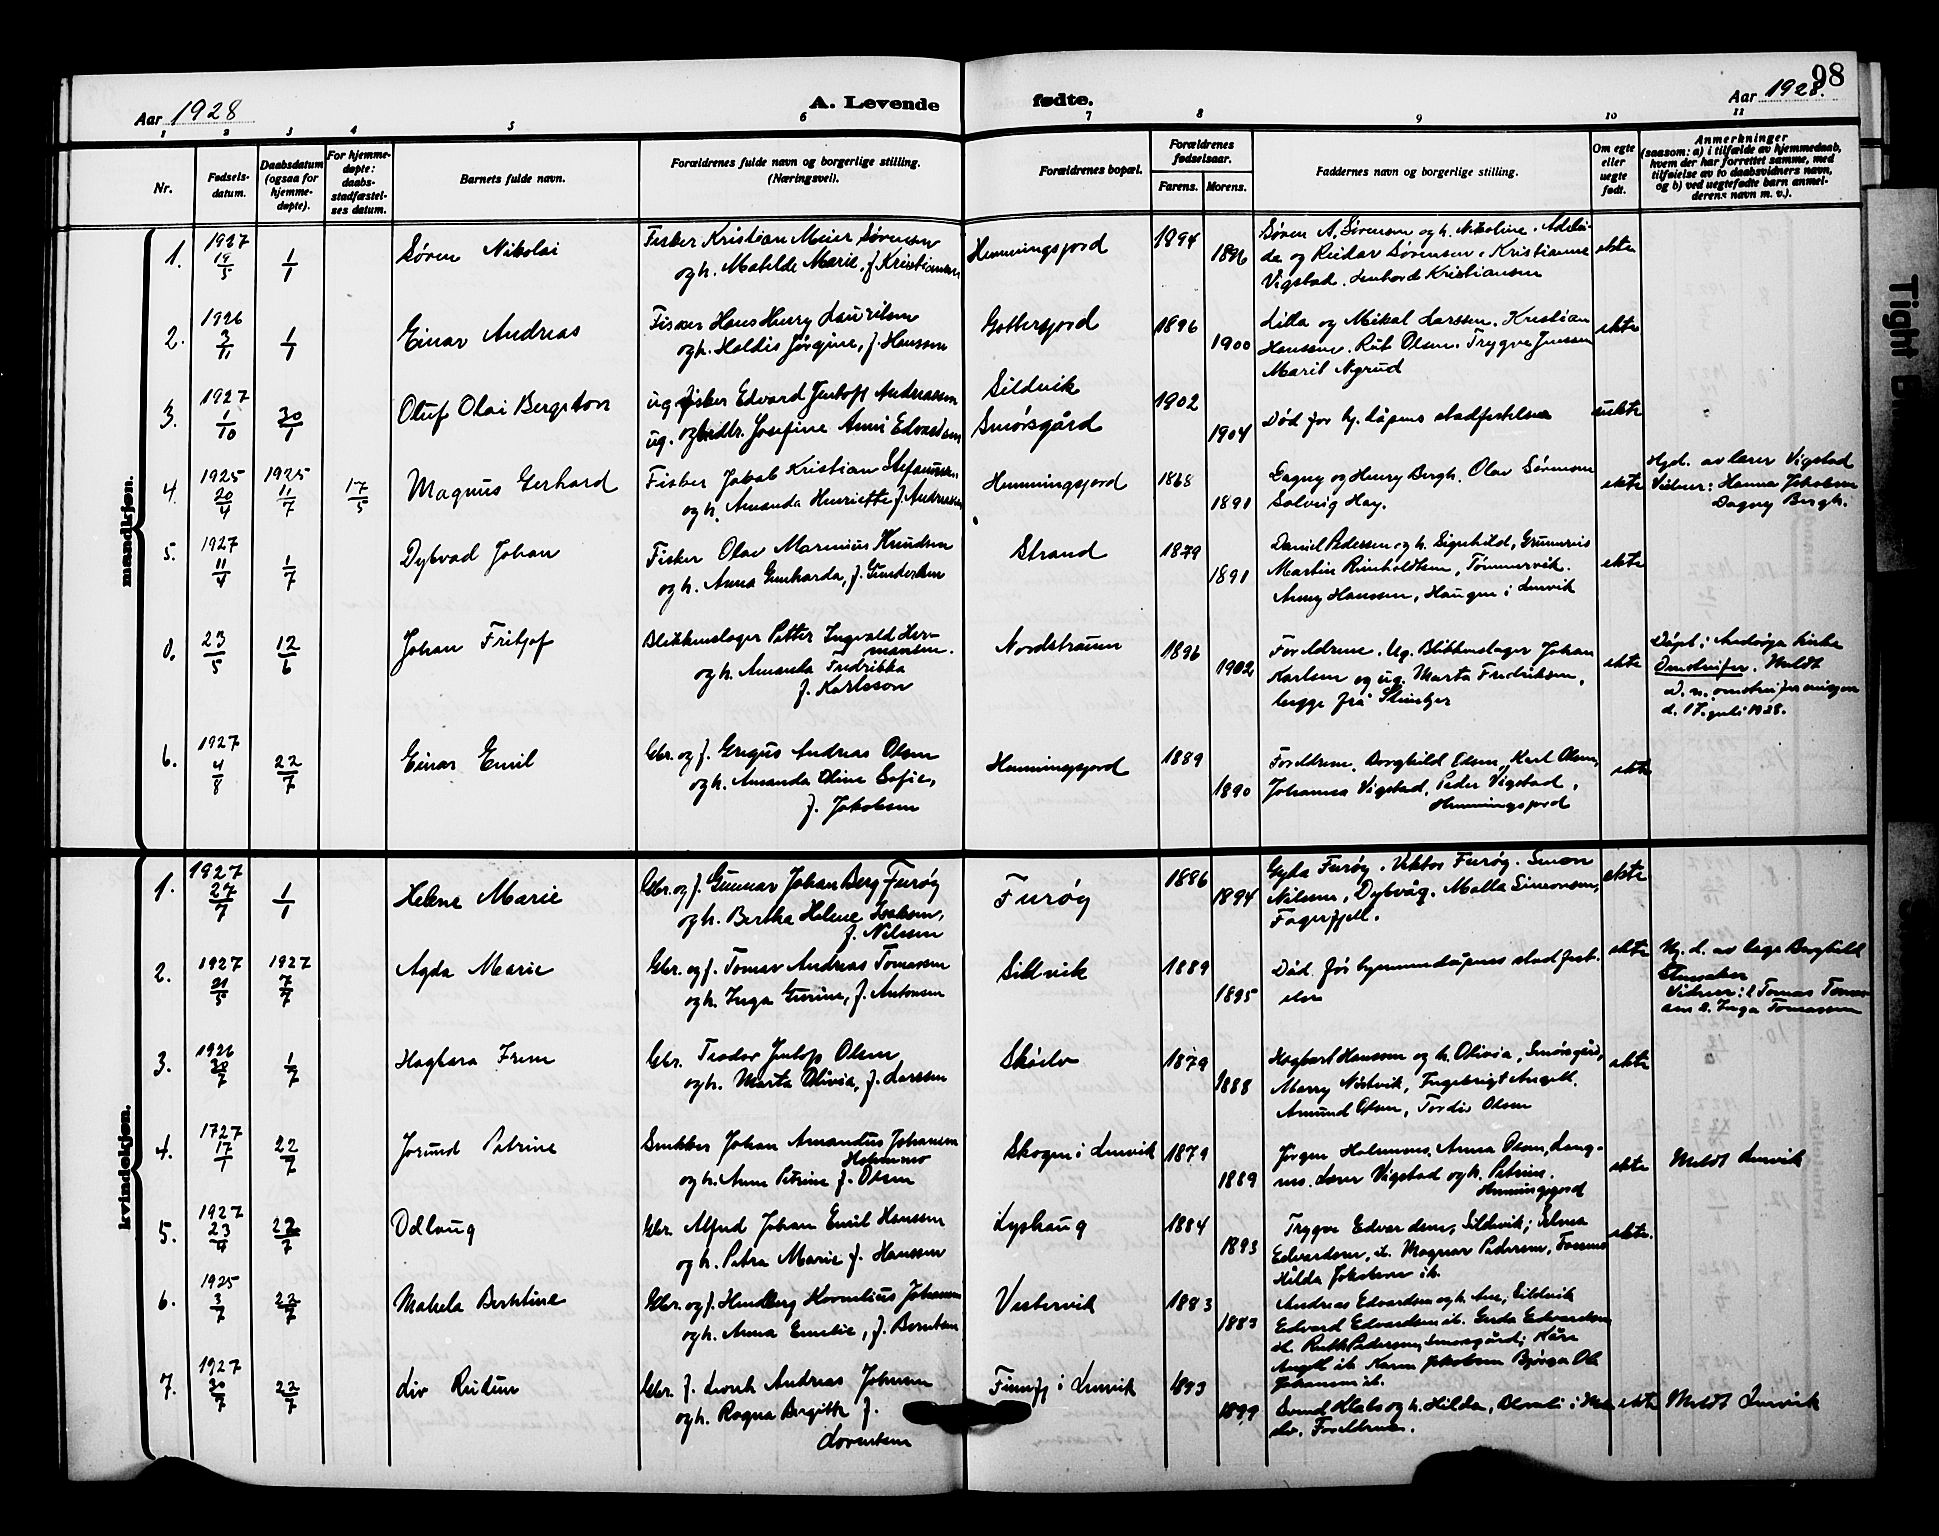 98
Aar 1928
A. Levende fødte.
Aar 1928.
1 2 3 4 5 6 7 8 9 10 11
Nr.
Fødsels-
datum.
Daabsdatum
(ogsaa for
hjemme-
døpte).
For hjemme-
døpte:
daabs-
stadfæstel-
ses datum.
Barnets fulde navn.
Forældrenes fulde navn og borgerlige stilling.
(Næringsvei).
Forældrenes bopæl.
Forældrenes
fødselsaar.
Farens. Morens.
Faddernes navn og borgerlige stilling.
Om egte
eller
uegte
født.
Anmerkninger
(saasom: a) i tilfælde av hjemmedaab,
hvem der har forrettet samme, med
tilføielse av to daabsvidners navn,
og b) ved uegtefødte barn anmel-
derens navn m. v.).
mandkjøn.
1. 1927 19/5 1/1 Søren Nikolai
Fisker Kristian Meier Sørensen
og h. Matelde Marie, f. Kristiansen
Henningsjord 1894 1896
Søren A. Sørensen og h. Nikoline. Adelei-
de og Reidar Sørensen. Kristianne
Vigstad. Kristiansen
ekte
2. 1926 3/11 1/1 Einar Andreas
Fisker Hans Henry Lauritsen
og h. Haldis Jørgine, f. Hansen
Gottersjord 1896 1900
Lilla og Mikal Larssen. Kristian
Hanssen. Rut Olsen. Trygve Jenssen
Marit Nyrud
ekte
3. 1927 1/10 30/1 Oluf Olai Bergeton
ug. fisker Edvard Jentoft Andreassen
ug. og Josefine Anni Edvardsen
Sildvik
Smørsgård 1902 1904
Død før hj. dåpens stadfestelse
uekte
4. 1925 20/4 1925 11/7 17/5 Magnus Gerhard
Fisker Jakob Kristian Stefanussen
og h. Amanda Henriette f. Andreassen
Henningsjord 1868 1891
Dagny og Henry Bergh. Olav Sørensen
Solveig Hay.
ekte
Hjd. av lærer Vigstad
Vidner: Hanna Jakobsen
Dagny Bergh.
5. 1927 11/4 1/7 Dybvad Johan
Fisker Olav Marinius Knudsen
og h. Anna Gunharda, f. Gundersen
Strand 1879 1891
Daniel Pedersen og h. Signhild, Grunnreis
Martin Reinholdtsen, Tømmervik.
Anny Hanssen, Haugen i Lenvik
ekte
0. 23/5 12/6 Johan Fritjof
Blikkenslager Petter Ingvald Her-
mansen.
og h. Amanda Fredrikka
f. Karlsson
Nordstraum 1896 1902
Foreldrene. Ug. Blikkenslager Johan
Karlsen og ug. Marta Fredriksen,
begge frå Steinkjer
ekte
Døpt i Andørja kirke
Omstreifer. Meldt
d. n. omstreifermisjon
d. 17. juli 1928.
6. 1927 4/8 22/7 Einar Emil
Gbr. og f. Gregus Andreas Olsen
og h. Amanda Oline Sofie,
f. Jakobsen
Henningsjord 1889 1890
Foreldrene. Borghild Olsen, Karl Olsen,
Johanna Vigstad, Peder Vigstad,
Henningsjord
ekte
kvindekjøn.
1. 1927 27/7 1/1 Helene Marie
Gbr. og f. Gunnar Johan Berg Furøy
og h. Bertha Helene Isaksen,
f. Nilssen
Furøy 1886 1894
Gyda Furøy. Viktor Furøy. Simon
Nilssen, Dybvåg. Malla Simonsen,
Fagerfjell.
ekte
2. 1927 21/5 1927 7/7 Agda Marie
Gbr. og f. Tomas Andreas Tomassen
og h. Inga Gurine, f. Antonsen
Sildvik 1889 1895
Død før hjemmedåpens stadfest-
else
ekte
Hj. d. av Borghild
Vidner: 1 Tomas Tomas-
sen 2. Inga Tomassen
3. 1926 28/7 1/7 Hagbara Irene
Gbr. Teodor Jentoft Olsen
og h. Marta Olivia, f. Larssen
Skøelv 1879 1888
Hagbart Hanssen og h. Olivia, Smørsgård,
Marry Nordvik, Ingebrigt Angell.
Amund Olsen, Tordis Olsen
ekte
4. 1727 17/1 22/7 Jorund Petrine
Snekker Johan Amandus Johansen
Holmmo
og h. Anne Petrine f. Olsen
Skogen i Lenvik 1879 1889
Jørgen Holmmo, Anna Olsen, Lang-
nes. Lærer Vigstad og h. Petrine.
Henningsjord
ekte
Meldt Lenvik
5. 1927 23/4 22/7 Odlaug
Gbr. Alfred Johan Emil Hanssen
og h. Petra Marie f. Hanssen
Lyshaug 1884 1893
Trygve Edvardsen, Sildvik; Selma
Edvardsen, ib. Magnar Pedersen, Fossmo
Hilda Jakobsen ib.
ekte.
6. 1925 3/7 22/7 Makela Berntine
Gbr. og f. Hendberg Kornelius Johansen
og h. Anna Emelie, f. Berntsen
Vestervik 1883 1883
Andreas Edvardsen og h. Ane, Sildvik
Edvard Edvardsen ib. Gerda Edvardsen
ib. Ruth Pedersen, Smørsgård; Kåre
Angell ib. Karen Jakobsen Bjørga Ole
Johansen ib.
7. 1927 30/7 22/7 Liv Reidun
Gbr. f. Leonh. Andreas Johnsen
og h. Ragna Bergitte f.
Lorentsen
Finnfj i Lenvik 1893 1899
Svend Klabo og h. Hilda, i Mål-
elv. Foreldrene.
ekte
Meldt Lenvik
Tight B